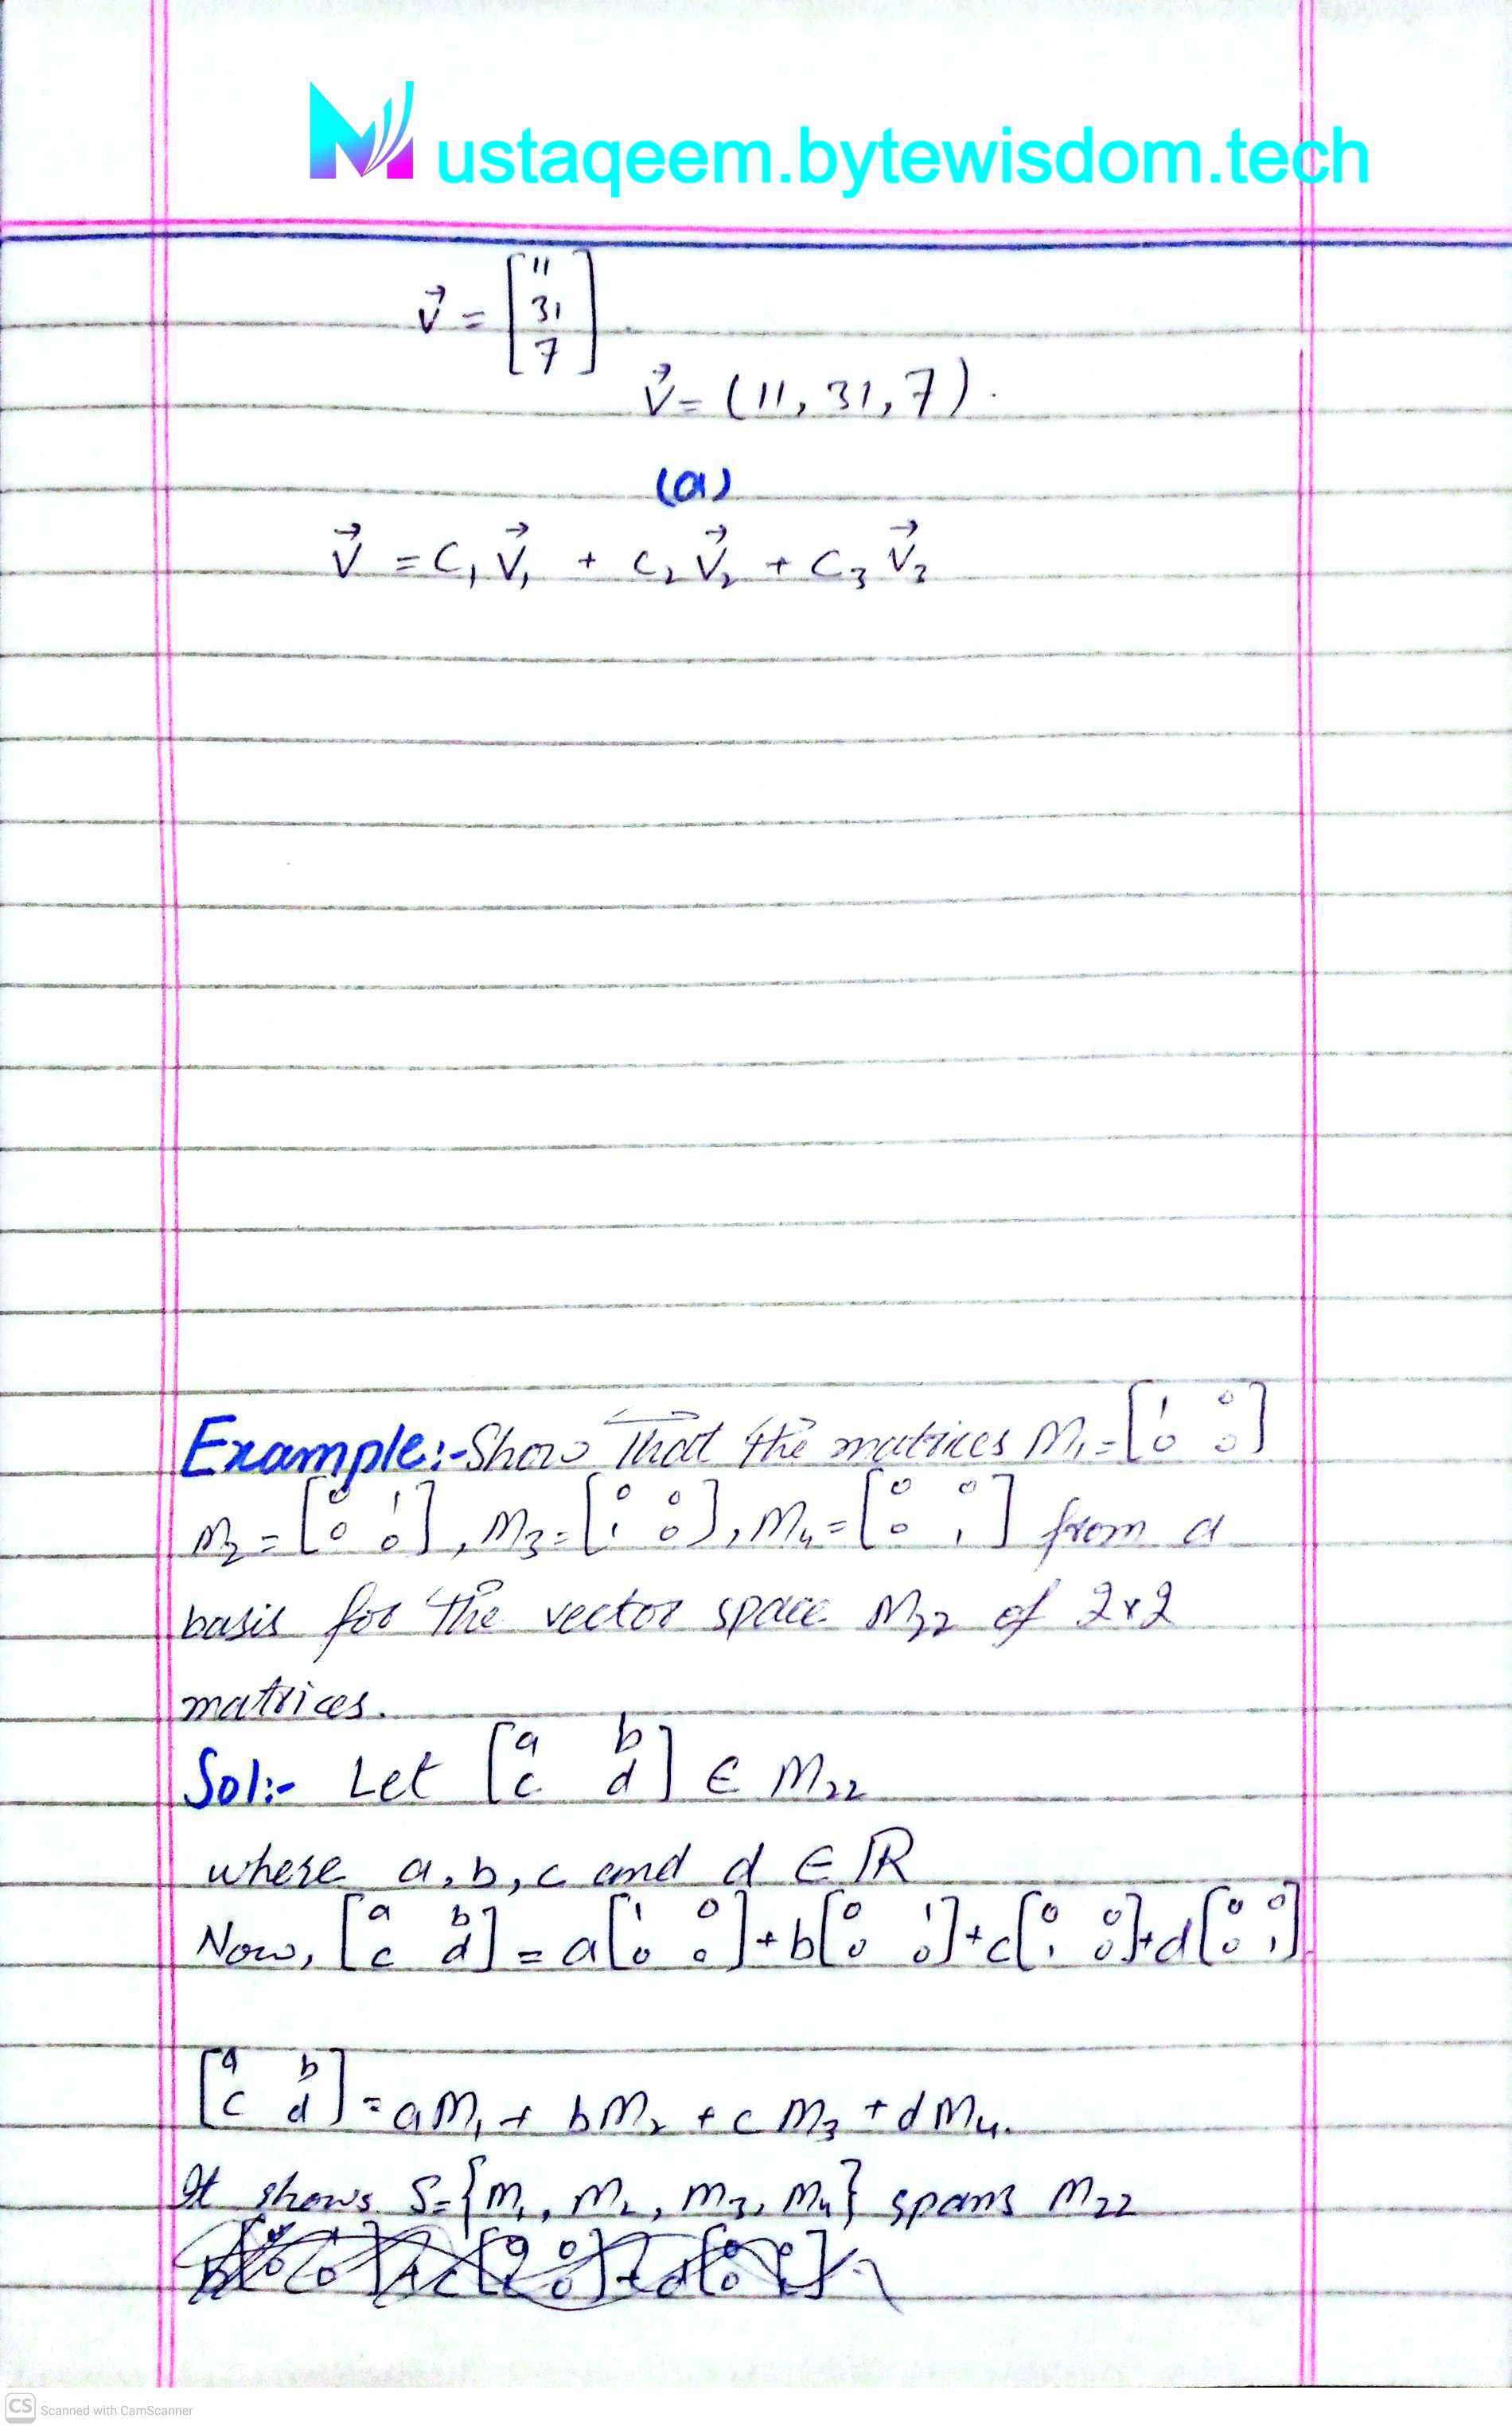 Mustaqeem.bytewisdom.tech
v⃗ = [11 31 7].
v⃗ = (11, 31, 7).
(a)
v⃗ = C₁v⃗₁ + C₂v⃗₂ + C₃v⃗₃
Example:- Show That the matrices M₁ = [1 0; 0 0]
M₂ = [0 1; 0 0], M₃ = [0 0; 1 0], M₄ = [0 0; 0 1] from a
basis for the vector space M₂₂ of 2×2
matrices.
Sol:- Let [a b; c d] ∈ M₂₂
where a, b, c and d ∈ ℝ
Now, [a b; c d] = a[1 0; 0 0] + b[0 1; 0 0] + c[0 0; 1 0] + d[0 0; 0 1].
[a b; c d] = aM₁ + bM₂ + cM₃ + dM₄.
It shows S = {M₁, M₂, M₃, M₄} spans M₂₂
CS Scanned with CamScanner